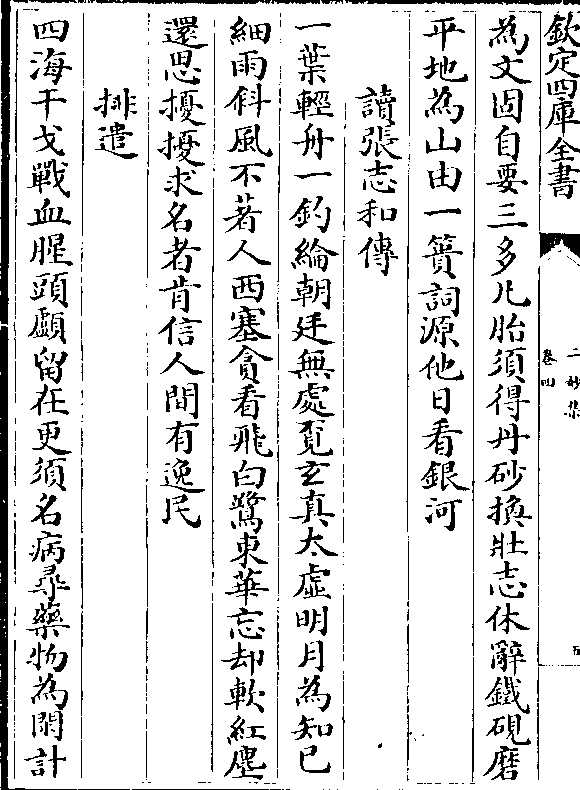 欽定四庫全書
二妙集
卷四
五
為文固自要三多凡胎須得丹砂換壯志休辭鐵硯磨
平地為山由一簣詞源他日看銀河
讀張志和傳
一葉輕舟一釣綸朝廷無處覔玄真太虛明月為知已
細雨斜風不著人西塞貪看飛白鷺東華忘却軟紅塵
還思擾擾求名者肯信人間有逸民
排遣
四海干戈戰血腥頭顱留在更須名病尋藥物為閒計